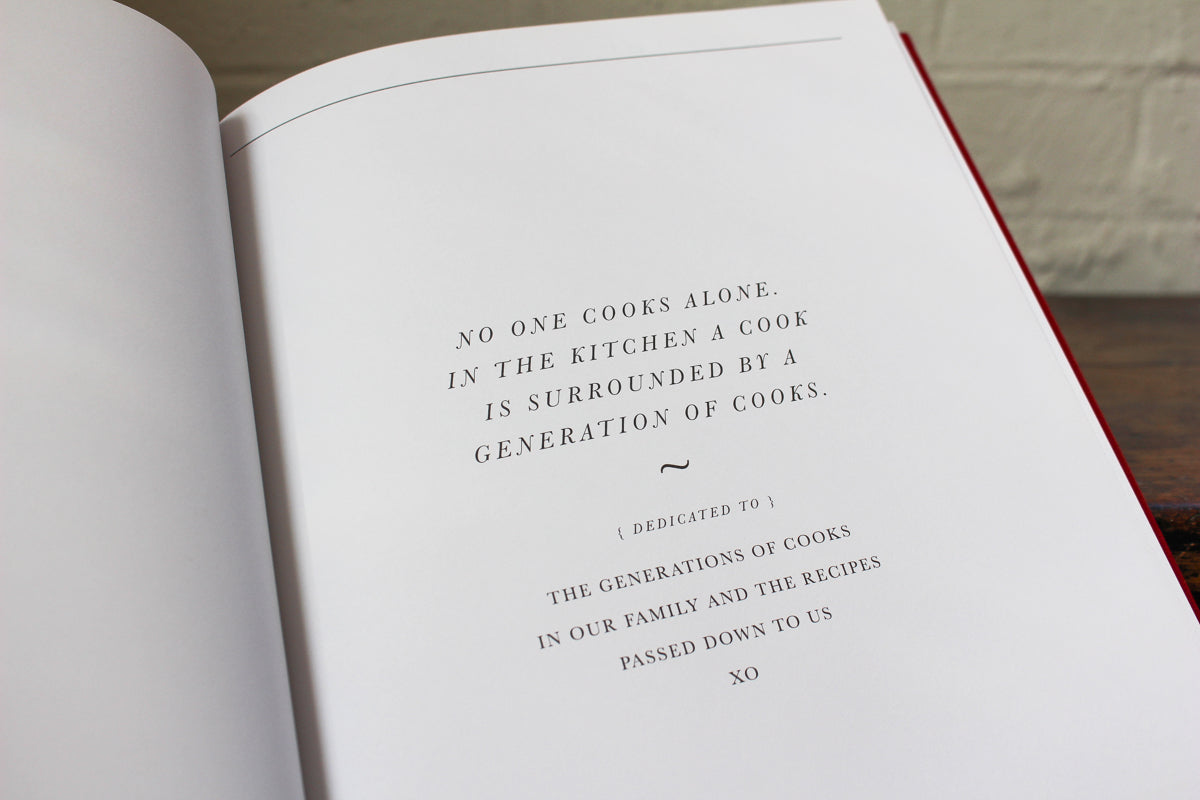 NO ONE COOKS ALONE.
IN THE KITCHEN A COOK
IS SURROUNDED BY A
GENERATION OF COOKS.
~
{ DEDICATED TO }
THE GENERATIONS OF COOKS
IN OUR FAMILY AND THE RECIPES
PASSED DOWN TO US
XO